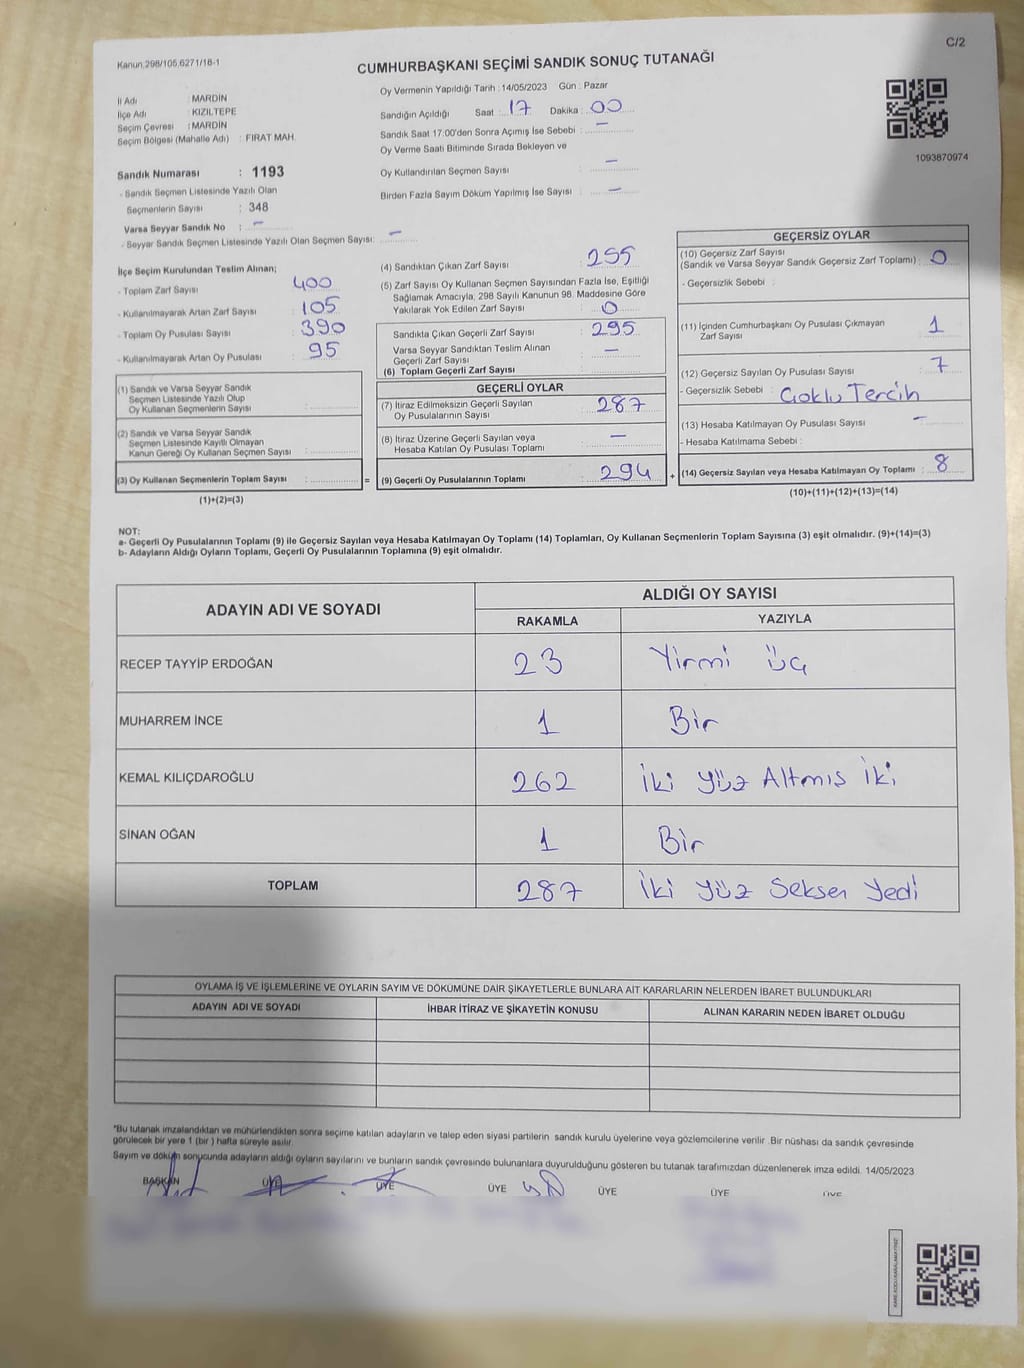 C/2
Kanun.298/105,6271/18-1
CUMHURBAŞKANI SEÇİMİ SANDIK SONUÇ TUTANAĞI
İl Adı : MARDİN
İlçe Adı : KIZILTEPE
Seçim Çevresi : MARDİN
Seçim Bölgesi (Mahalle Adı) : FIRAT MAH.
Sandık Numarası : 1193
- Sandık Seçmen Listesinde Yazılı Olan
Seçmenlerin Sayısı : 348
Varsa Seyyar Sandık No : -
- Seyyar Sandık Seçmen Listesinde Yazılı Olan Seçmen Sayısı: -
Oy Vermenin Yapıldığı Tarih : 14/05/2023 Gün : Pazar
Sandığın Açıldığı Saat : 17 Dakika : 00
Sandık Saat 17:00'den Sonra Açımış İse Sebebi : -
Oy Verme Saati Bitiminde Sırada Bekleyen ve
Oy Kullandırılan Seçmen Sayısı : -
Birden Fazla Sayım Döküm Yapılmış İse Sayısı : -
1093870974
İlçe Seçim Kurulundan Teslim Alınan;
- Toplam Zarf Sayısı : 400
- Kullanılmayarak Artan Zarf Sayısı : 105
- Toplam Oy Pusulası Sayısı : 390
- Kullanılmayarak Artan Oy Pusulası : 95
(1) Sandık ve Varsa Seyyar Sandık
Seçmen Listesinde Yazılı Olup
Oy Kullanan Seçmenlerin Sayısı :
(2) Sandık ve Varsa Seyyar Sandık
Seçmen Listesinde Kayıtlı Olmayan
Kanun Gereği Oy Kullanan Seçmen Sayısı :
(3) Oy Kullanan Seçmenlerin Toplam Sayısı : =
(1)+(2)=(3)
(4) Sandıktan Çıkan Zarf Sayısı : 295
(5) Zarf Sayısı Oy Kullanan Seçmen Sayısından Fazla İse, Eşitliği
Sağlamak Amacıyla, 298 Sayılı Kanunun 98. Maddesine Göre
Yakılarak Yok Edilen Zarf Sayısı : 0
Sandıkta Çıkan Geçerli Zarf Sayısı : 295
Varsa Seyyar Sandıktan Teslim Alınan
Geçerli Zarf Sayısı : -
(6) Toplam Geçerli Zarf Sayısı :
GEÇERLİ OYLAR
(7) İtiraz Edilmeksizin Geçerli Sayılan
Oy Pusulalarının Sayısı : 287
(8) İtiraz Üzerine Geçerli Sayılan veya
Hesaba Katılan Oy Pusulası Toplamı : -
(9) Geçerli Oy Pusulalarının Toplamı : 294 +
GEÇERSİZ OYLAR
(10) Geçersiz Zarf Sayısı
(Sandık ve Varsa Seyyar Sandık Geçersiz Zarf Toplamı) : 0
- Geçersizlik Sebebi :
(11) İçinden Cumhurbaşkanı Oy Pusulası Çıkmayan
Zarf Sayısı : 1
(12) Geçersiz Sayılan Oy Pusulası Sayısı : 7
- Geçersizlik Sebebi : Çoklu Tercih
(13) Hesaba Katılmayan Oy Pusulası Sayısı : -
- Hesaba Katılmama Sebebi :
(14) Geçersiz Sayılan veya Hesaba Katılmayan Oy Toplamı : 8
(10)+(11)+(12)+(13)=(14)
NOT:
a- Geçerli Oy Pusulalarının Toplamı (9) ile Geçersiz Sayılan veya Hesaba Katılmayan Oy Toplamı (14) Toplamları, Oy Kullanan Seçmenlerin Toplam Sayısına (3) eşit olmalıdır. (9)+(14)=(3)
b- Adayların Aldığı Oyların Toplamı, Geçerli Oy Pusulalarının Toplamına (9) eşit olmalıdır.
ADAYIN ADI VE SOYADI ALDIĞI OY SAYISI
RAKAMLA YAZIYLA
RECEP TAYYİP ERDOĞAN 23 Yirmi üç
MUHARREM İNCE 1 Bir
KEMAL KILIÇDAROĞLU 262 İki yüz Altmış İki
SİNAN OĞAN 1 Bir
TOPLAM 287 İki yüz Seksen Yedi
OYLAMA İŞ VE İŞLEMLERİNE VE OYLARIN SAYIM VE DÖKÜMÜNE DAİR ŞİKAYETLERLE BUNLARA AİT KARARLARIN NELERDEN İBARET BULUNDUKLARI
ADAYIN ADI VE SOYADI İHBAR İTİRAZ VE ŞİKAYETİN KONUSU ALINAN KARARIN NEDEN İBARET OLDUĞU
"Bu tutanak imzalandıktan ve mühürlendikten sonra seçime katılan adayların ve talep eden siyasi partilerin sandık kurulu üyelerine veya gözlemcilerine verilir .Bir nüshası da sandık çevresinde
görülecek bir yere 1 (bir ) hafta süreyle asılır.
Sayım ve döküm sonucunda adayların aldığı oyların sayılarını ve bunların sandık çevresinde bulunanlara duyurulduğunu gösteren bu tutanak tarafımızdan düzenlenerek imza edildi. 14/05/2023
BAŞKAN ÜYE ÜYE ÜYE ÜYE ÜYE ÜYE